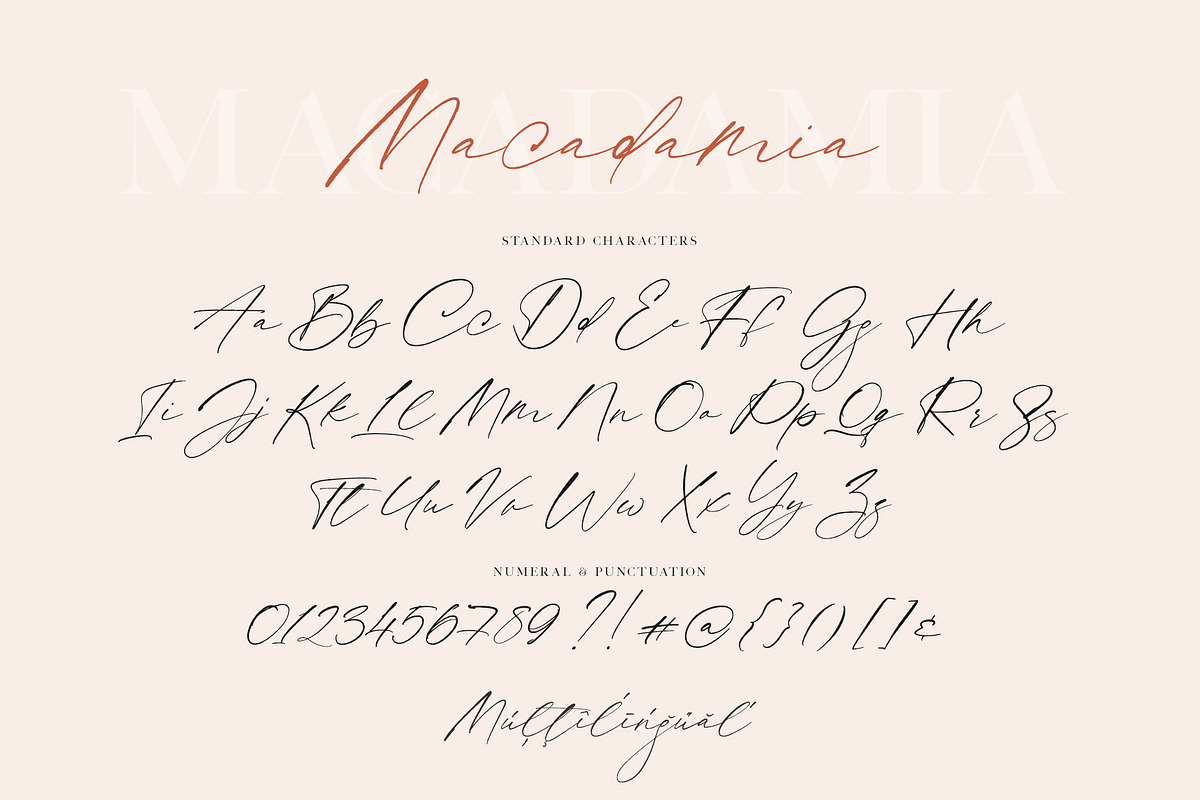 MACADAMIA
Macadamia
STANDARD CHARACTERS
Aa Bb Cc Dd Ee Ff Gg Hh
Ii Jj Kk Ll Mm Nn Oo Pp Qq Rr Ss
Tt Uu Vv Ww Xx Yy Zz
NUMERAL & PUNCTUATION
0123456789 ?! # @ { } ( ) [ ] &
Múļţîĺīńğüăĺ